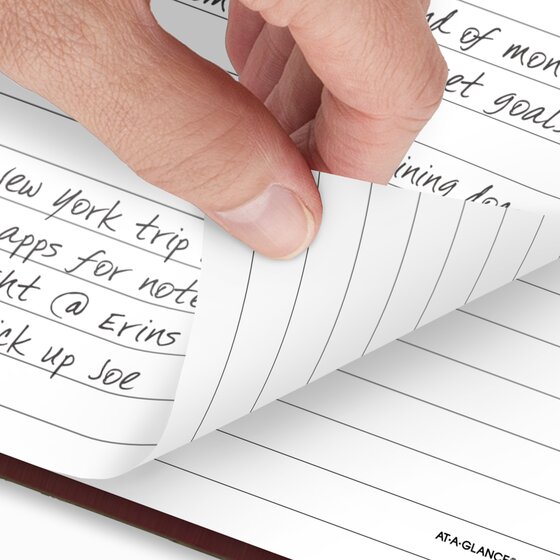 nd of mon
et goals
ining
New York trip
apps for note
ht @ Erins
ck up Joe
AT-A-GLANCE